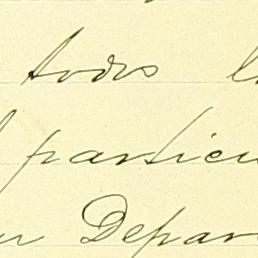 todos l
particu
Depar